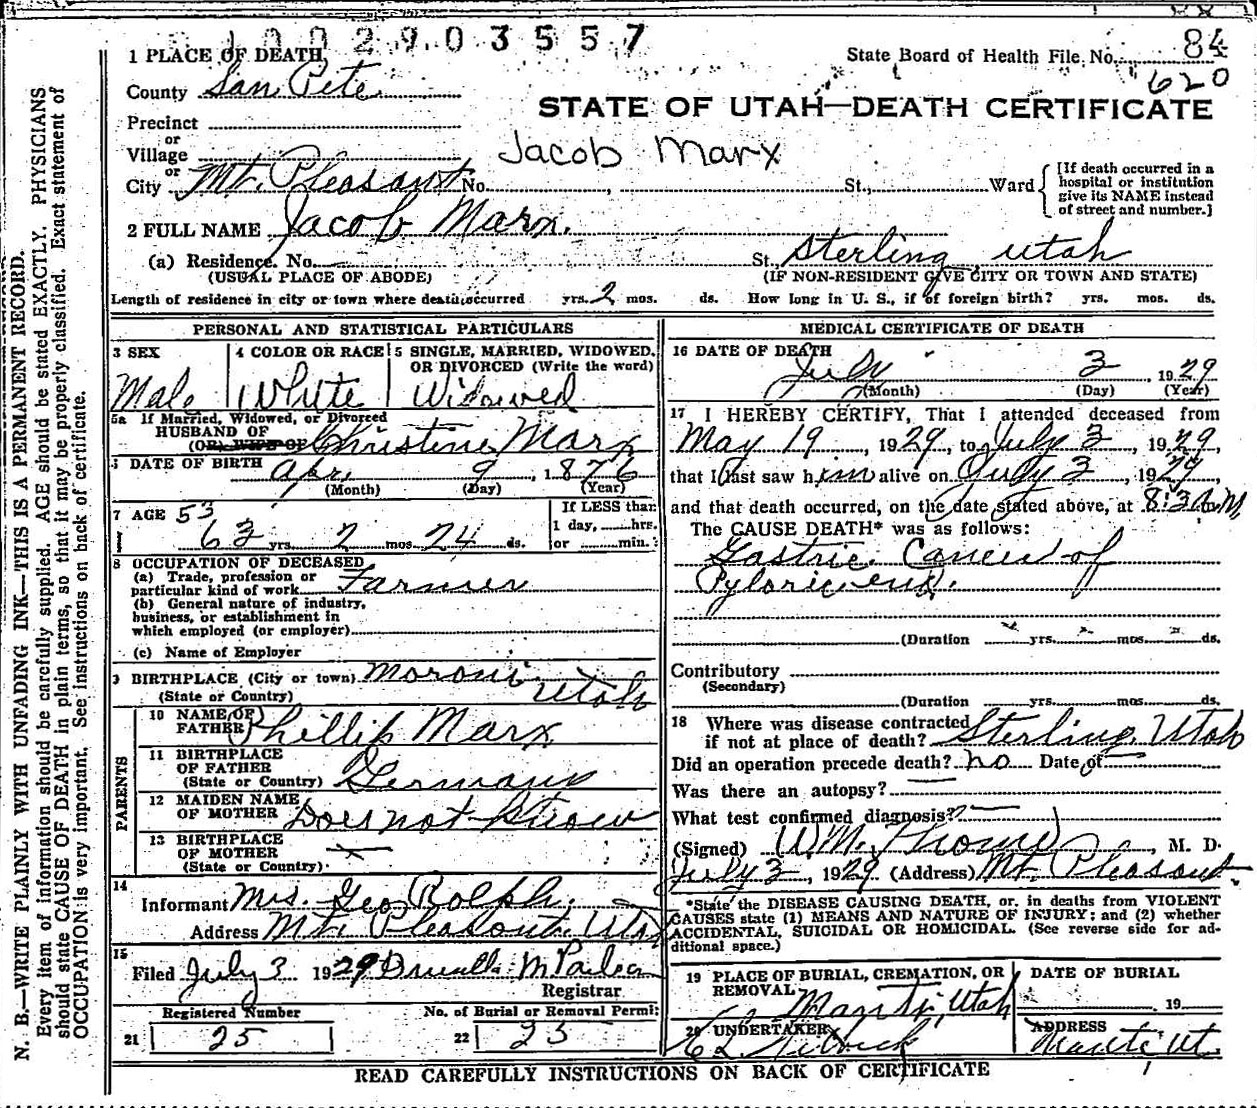 1 0 0 2 9.0 3 5 5 7
1 PLACE OF DEATH
State Board of Health File No. 84
620
County San Pete
STATE OF UTAH—DEATH CERTIFICATE
Precinct
or
Village
Jacob Marx
or
City Mt. Pleasant No. , St., Ward
[If death occurred in a
hospital or institution
give its NAME instead
of street and number.]
2 FULL NAME Jacob Marx.
(a) Residence. No. St. Sterling, Utah
(USUAL PLACE OF ABODE) (IF NON-RESIDENT GIVE CITY OR TOWN AND STATE)
Length of residence in city or town where death occurred yrs. 2 mos. ds. How long in U. S., if of foreign birth? yrs. mos. ds.
PERSONAL AND STATISTICAL PARTICULARS
3 SEX 4 COLOR OR RACE 5 SINGLE, MARRIED, WIDOWED,
OR DIVORCED (Write the word)
Male White Widowed
5a If Married, Widowed, or Divorced
HUSBAND OF
(OR) WIFE OF Christine Marx
6 DATE OF BIRTH Apr. 9, 1876
(Month) (Day) (Year)
7 AGE 53
63 yrs. 2 mos. 24 ds.
If LESS than
1 day, hrs.
or min.
8 OCCUPATION OF DECEASED
(a) Trade, profession or
particular kind of work Farmer
(b) General nature of industry,
business, or establishment in
which employed (or employer)
(c) Name of Employer
9 BIRTHPLACE (City or town) Moroni
(State or Country) Utah
PARENTS
10 NAME OF
FATHER Phillip Marx
11 BIRTHPLACE
OF FATHER
(State or Country) Germany
12 MAIDEN NAME
OF MOTHER Does not know
13 BIRTHPLACE
OF MOTHER
(State or Country)
14
Informant Mrs. Geo Rolph.
Address Mt. Pleasant, Utah
15
Filed July 3 1929
Registrar
Registered Number No. of Burial or Removal Permit
21 25 22 25
MEDICAL CERTIFICATE OF DEATH
16 DATE OF DEATH
July 3, 1929
(Month) (Day) (Year)
17 I HEREBY CERTIFY, That I attended deceased from
May 19, 1929, to July 3 1929,
that I last saw him alive on July 3, 1929,
and that death occurred, on the date stated above, at 8:30 A.M
The CAUSE DEATH* was as follows:
Gastric Cancer of
Pyloric end.
(Duration yrs. mos. ds.
Contributory
(Secondary)
(Duration yrs. mos. ds.
18 Where was disease contracted
if not at place of death? Sterling, Utah
Did an operation precede death? no Date of
Was there an autopsy?
What test confirmed diagnosis?
(Signed) , M. D.
July 3, 1929. (Address) Mt. Pleasant.
*State the DISEASE CAUSING DEATH, or, in deaths from VIOLENT
CAUSES state (1) MEANS AND NATURE OF INJURY; and (2) whether
ACCIDENTAL, SUICIDAL OR HOMICIDAL. (See reverse side for ad-
ditional space.)
19 PLACE OF BURIAL, CREMATION, OR
REMOVAL
Manti, Utah
DATE OF BURIAL
19
20 UNDERTAKER
ADDRESS
Manti, Ut.
READ CAREFULLY INSTRUCTIONS ON BACK OF CERTIFICATE
N. B.—WRITE PLAINLY WITH UNFADING INK—THIS IS A PERMANENT RECORD.
Every item of information should be carefully supplied. AGE should be stated EXACTLY. PHYSICIANS
should state CAUSE OF DEATH in plain terms, so that it may be properly classified. Exact statement of
OCCUPATION is very important. See instructions on back of certificate.